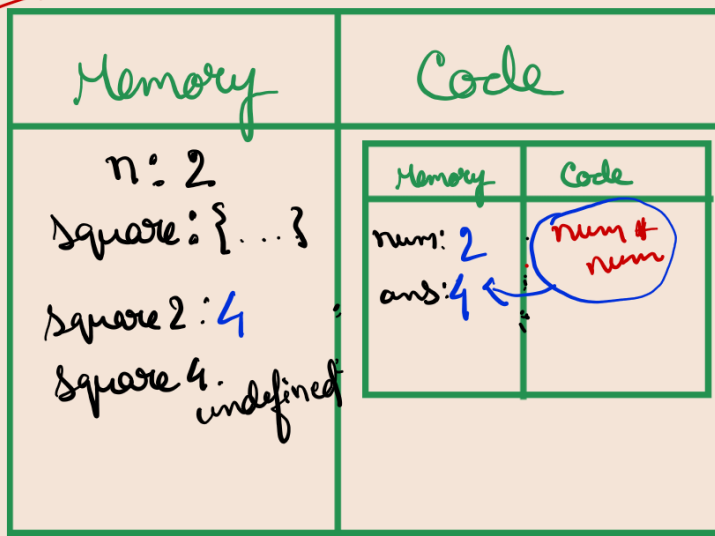 Memory
Code
n: 2
square: {...}
square2: 4
square4: undefined
Memory
Code
num: 2
ans: 4
num *
num